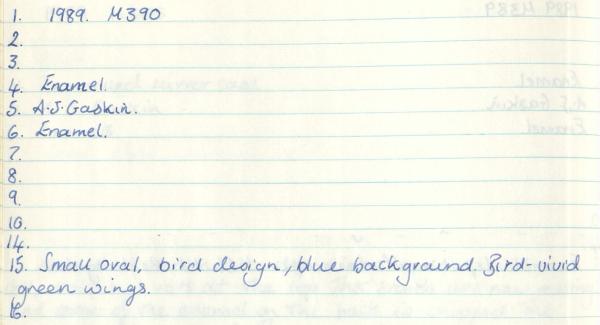 1. 1989. M390
2.
3.
4. Enamel.
5. A.J. Gaskin.
6. Enamel.
7.
8.
9.
10.
14.
15. Small oval, bird design, blue background. Bird-vivid
green wings.
16.
1989 M389
Enamel
A.J. Gaskin
Enamel